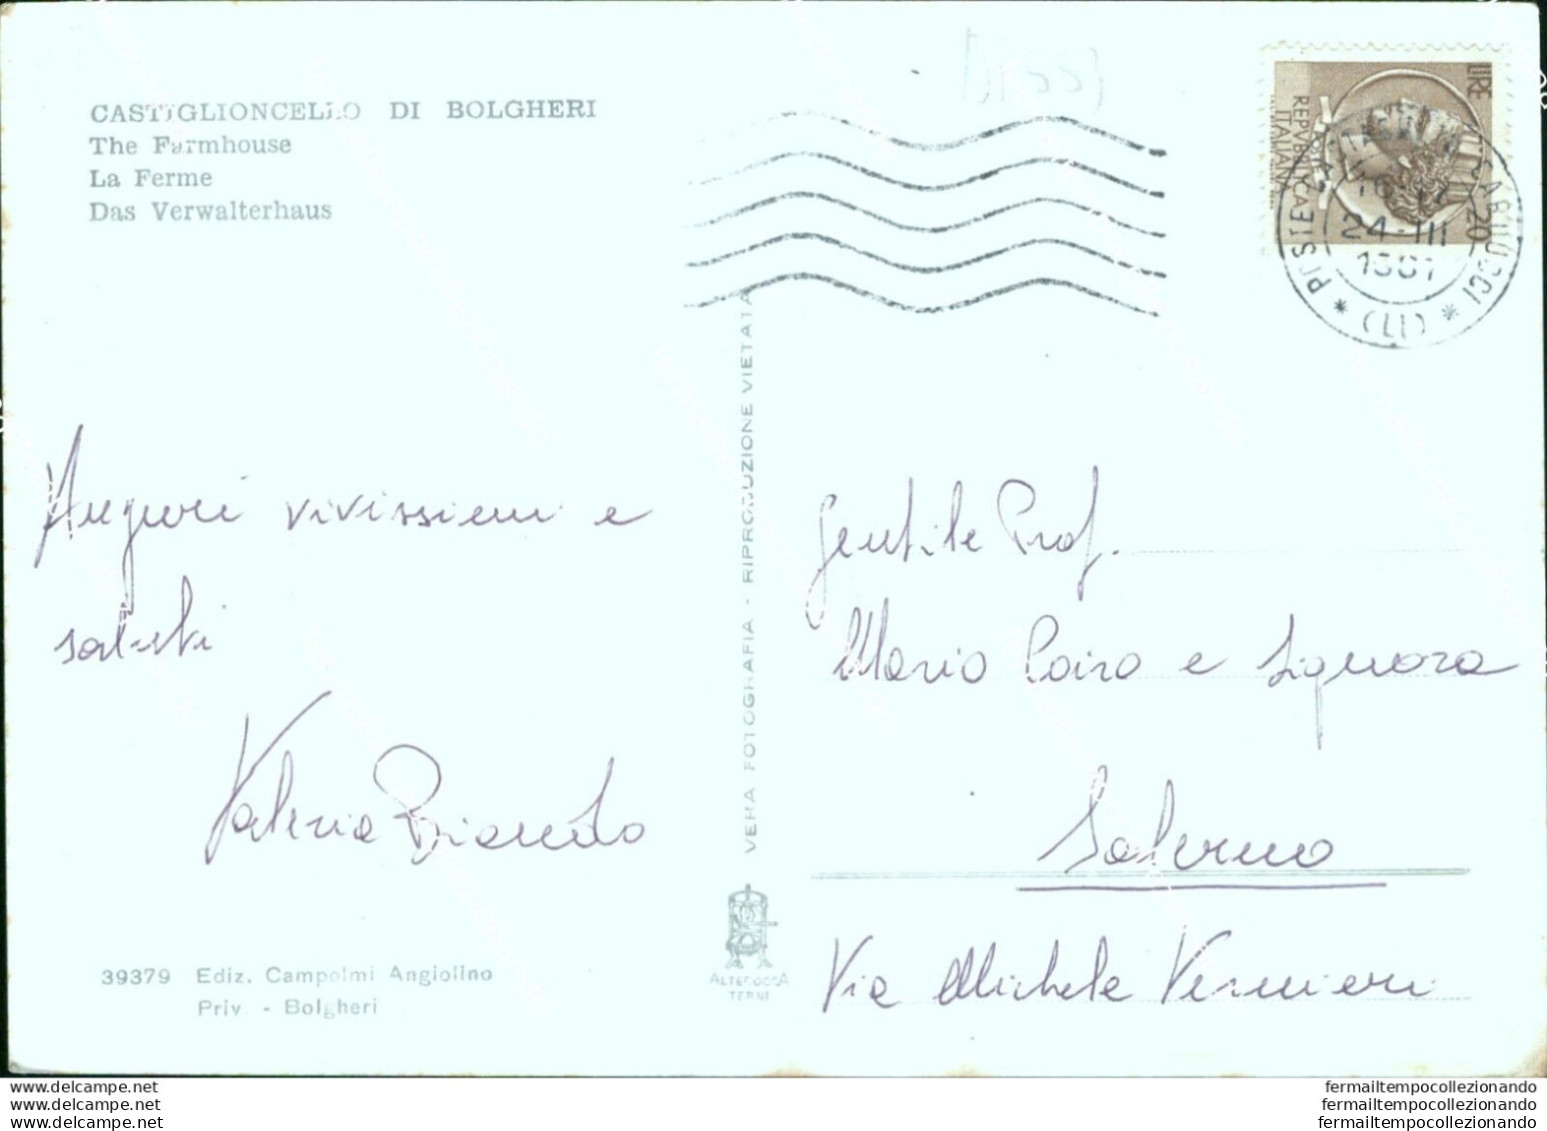 CASTIGLIONCELLO DI BOLGHERI
The Farmhouse
La Ferme
Das Verwalterhaus
LIRE
20
REPVBBLICA
ITALIANA
POSTE
CARDUCCI
24-III
* (LI) *
Auguri vivissimi e
saluti
Valeria
39379 Ediz. Campolmi Angiolino
Priv. - Bolgheri
VERA FOTOGRAFIA - RIPRODUZIONE VIETATA
ALTEROCCA
TERNI
Gentile Prof.
Mario Poiro e Signora
Salerno
Via Michele Vernieri
www.delcampe.net
www.delcampe.net
www.delcampe.net
fermailtempocollezionando
fermailtempocollezionando
fermailtempocollezionando